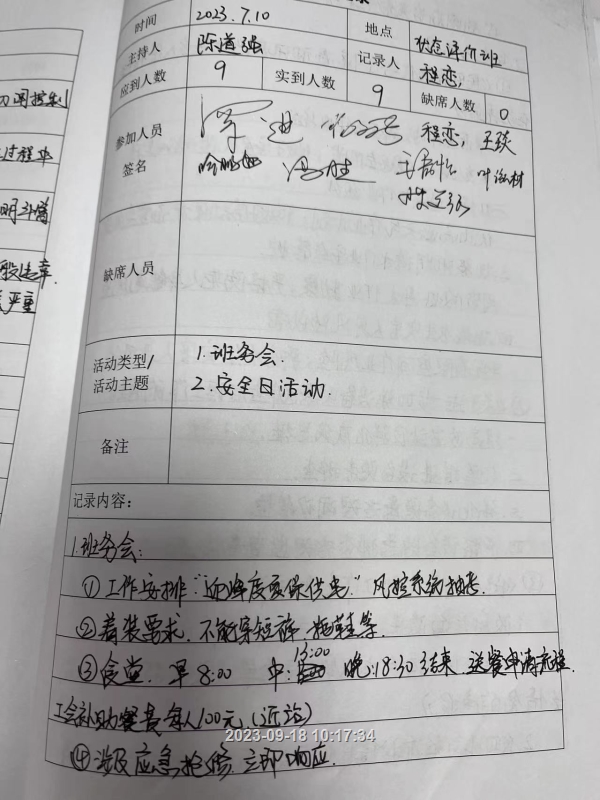 时间 2023.7.10 地点 状态评价班
主持人 陈道强 记录人 程恋
应到人数 9 实到人数 9 缺席人数 0
参加人员 程恋, 王琰
签名
缺席人员
活动类型/ 1.班务会.
活动主题 2.安全日活动.
备注
记录内容:
1.班务会:
①工作安排:"迎峰度夏保供电" 风控系统抽考.
②着装要求. 不能穿短裤 拖鞋等.
③食堂. 早8:00 中: 13:00 晚:18:30 结束. 送餐申请
工会补助餐费每人100元.
④涉及应急抢修. 立即响应.
2023-09-18 10:17:34
过程中
严重